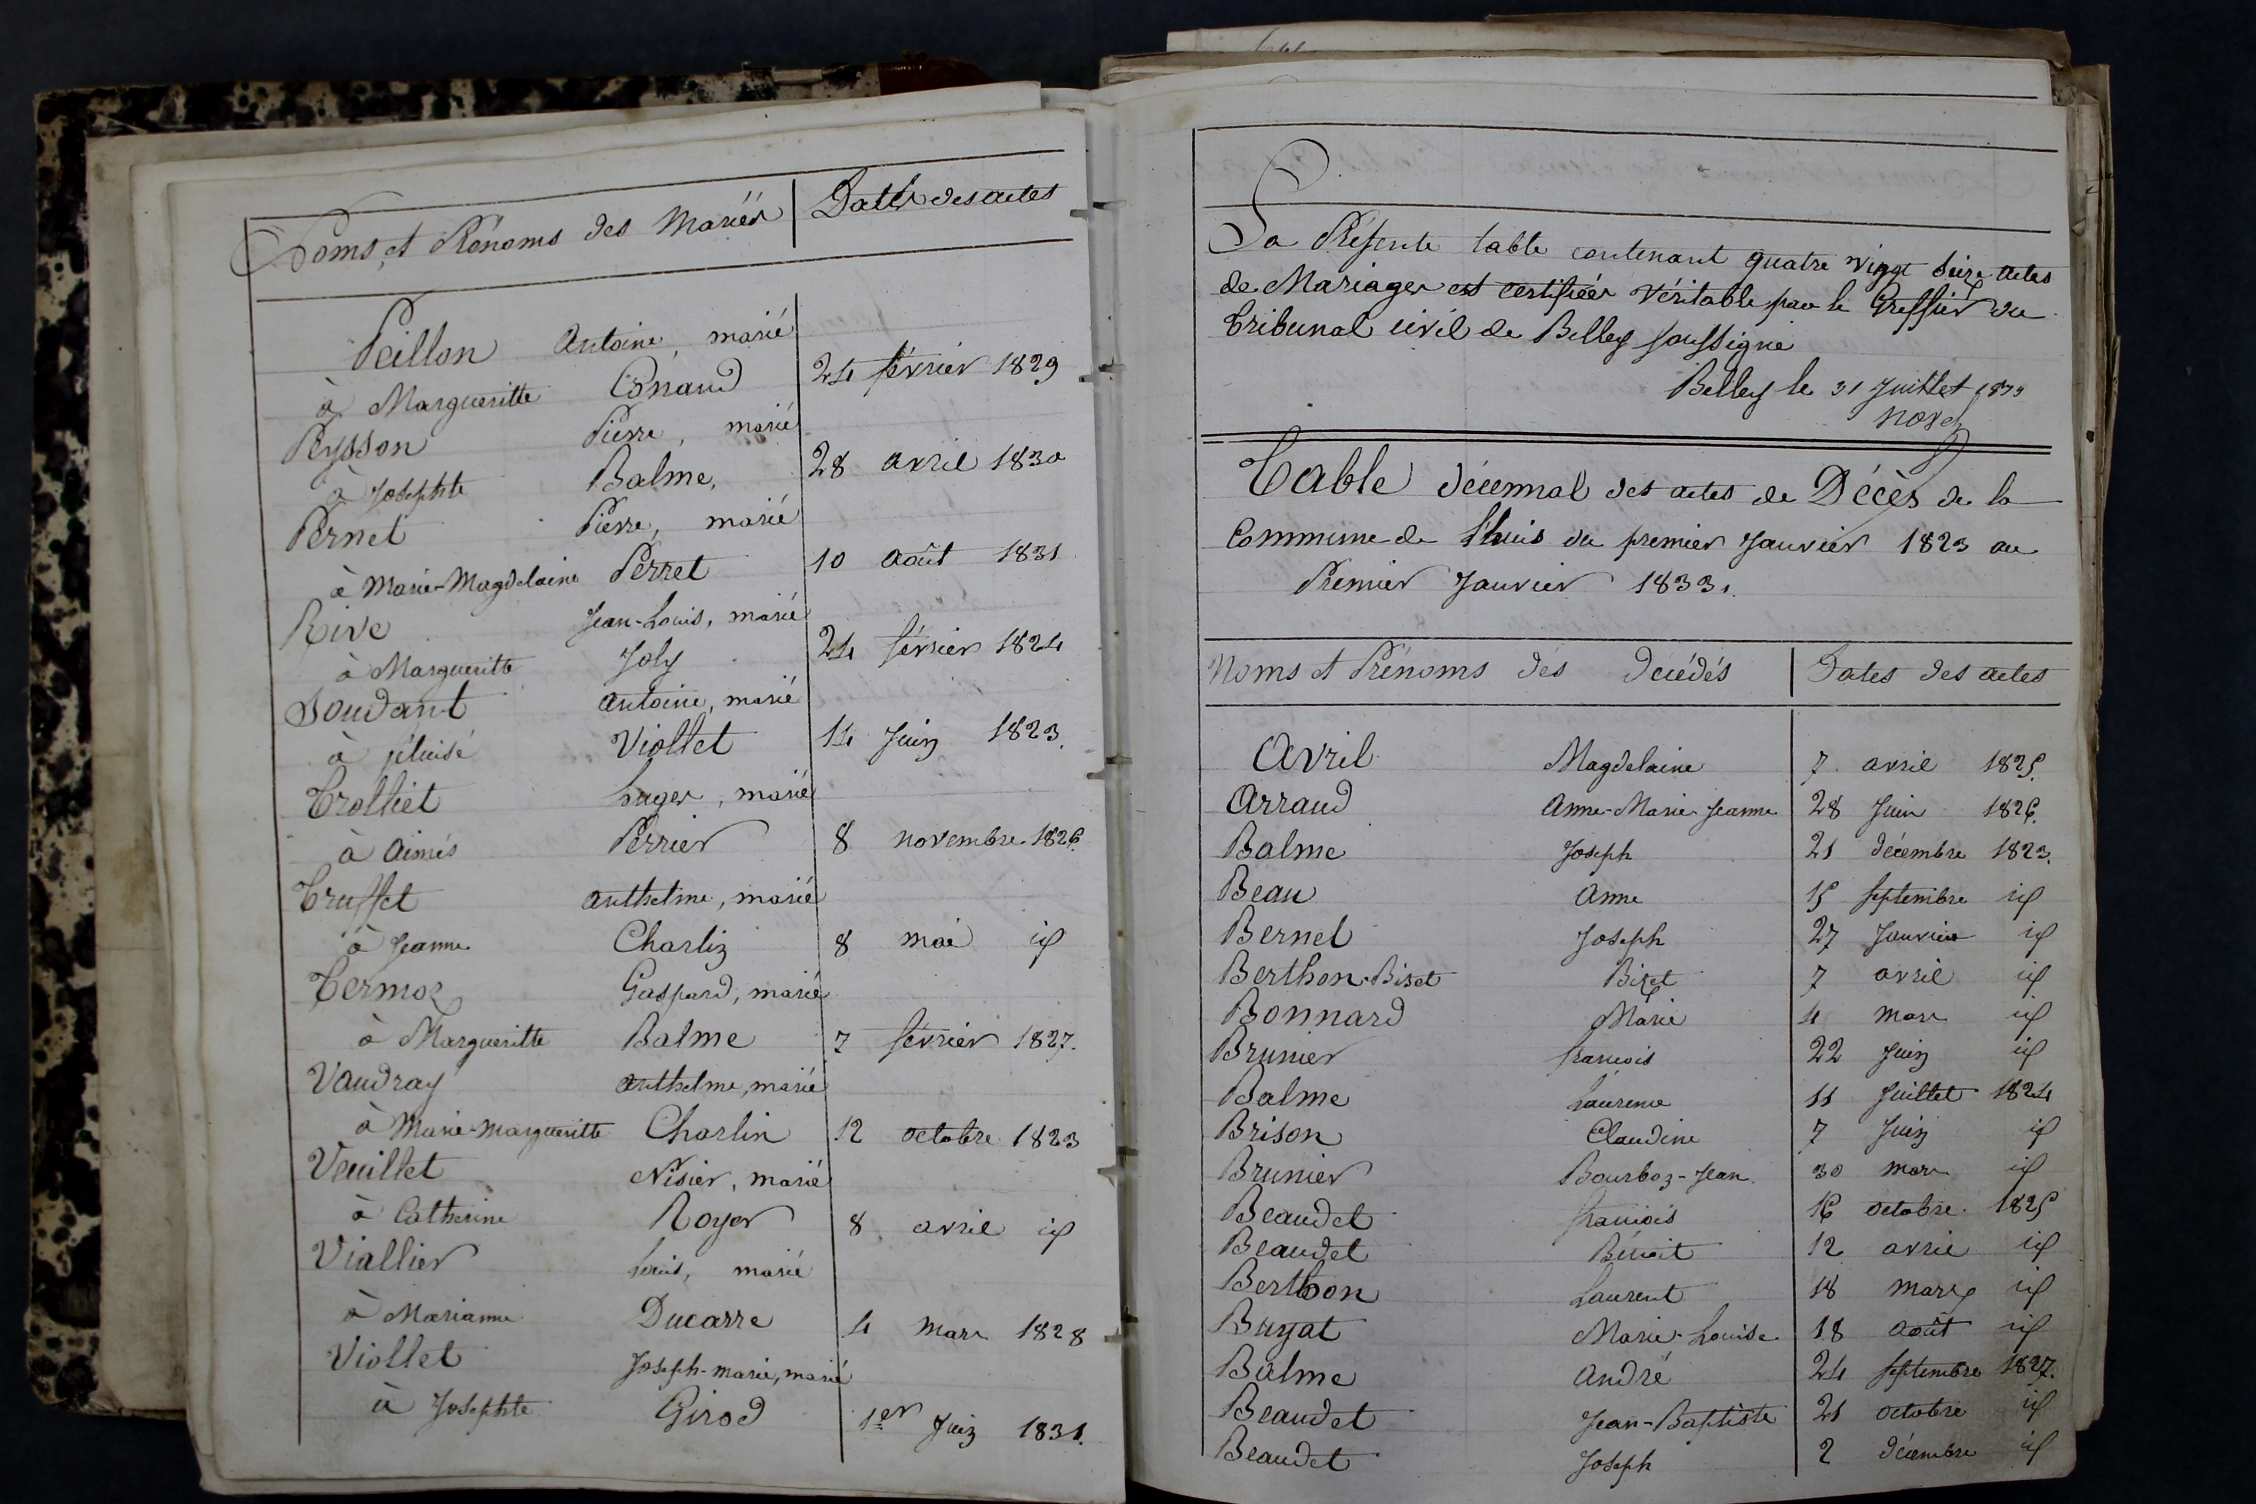 Noms et Prénoms des Mariés Dates des actes
Peillon Antoine, marié
à Margueritte Conand 24 février 1829
Peysson Pierre, marié
à Josephte Balme, 28 avril 1830
Pernet Pierre, marié
à Marie-Magdelaine Perret 10 août 1831
Rive Jean-Louis, marié
à Margueritte Joly 24 février 1824
Soudant antoine, marié
à Viollet 14 Juin 1823.
Trolliet Luger, marié
à Aimés Perrier 8 novembre 1826.
Truffet anthelme, marié
à Jeanne Charlin 8 mai id
Termoz Gaspard, marié
à Margueritte Balme 7 février 1827.
Vaudray anthelme, marié
à Marie-Margueritte Charlin 12 octobre 1823
Veuillet Nisier, marié
à Catherine Royer 8 avril id
Viallier Louis, marié
à Marianne Ducarre 4 mars 1828
Viollet Joseph-marie, marié
à Josephte Girod 1er Juin 1831.
La Présente table contenant quatre vingt seize actes
de Mariages est certifiée véritable par le Greffier du
Tribunal civil de Belley soussigné
Belley le 31 Juillet 1833
Table décennal des actes de Décès de la
Commune de Lhuis du premier Janvier 1823 au
Premier Janvier 1833.
Noms et Prénoms des Décédés Dates des actes
Avril Magdelaine 7 avril 1825.
Arraud Anne-Marie-Jeanne 28 Juin 1826.
Balme Joseph 21 décembre 1823.
Beau Anne 15 septembre id
Bernet Joseph 27 Janvier id
Berthon-Biset Bizet 7 avril id
Bonnard Marie 4 mars id
Brunier françois 22 Juin id
Balme Laurence 11 Juillet 1824
Brison Claudine 7 Juin id
Brunier Bourboz-Jean 30 mars id
Beaudet françois 16 octobre 1825
Beaudet Benoit 12 avril id
Berthon Laurent 18 mars id
Bugat Marie-Louise 18 août id
Balme André 24 septembre 1827.
Beaudet Jean-Baptiste 21 octobre id
Beaudet Joseph 2 décembre id